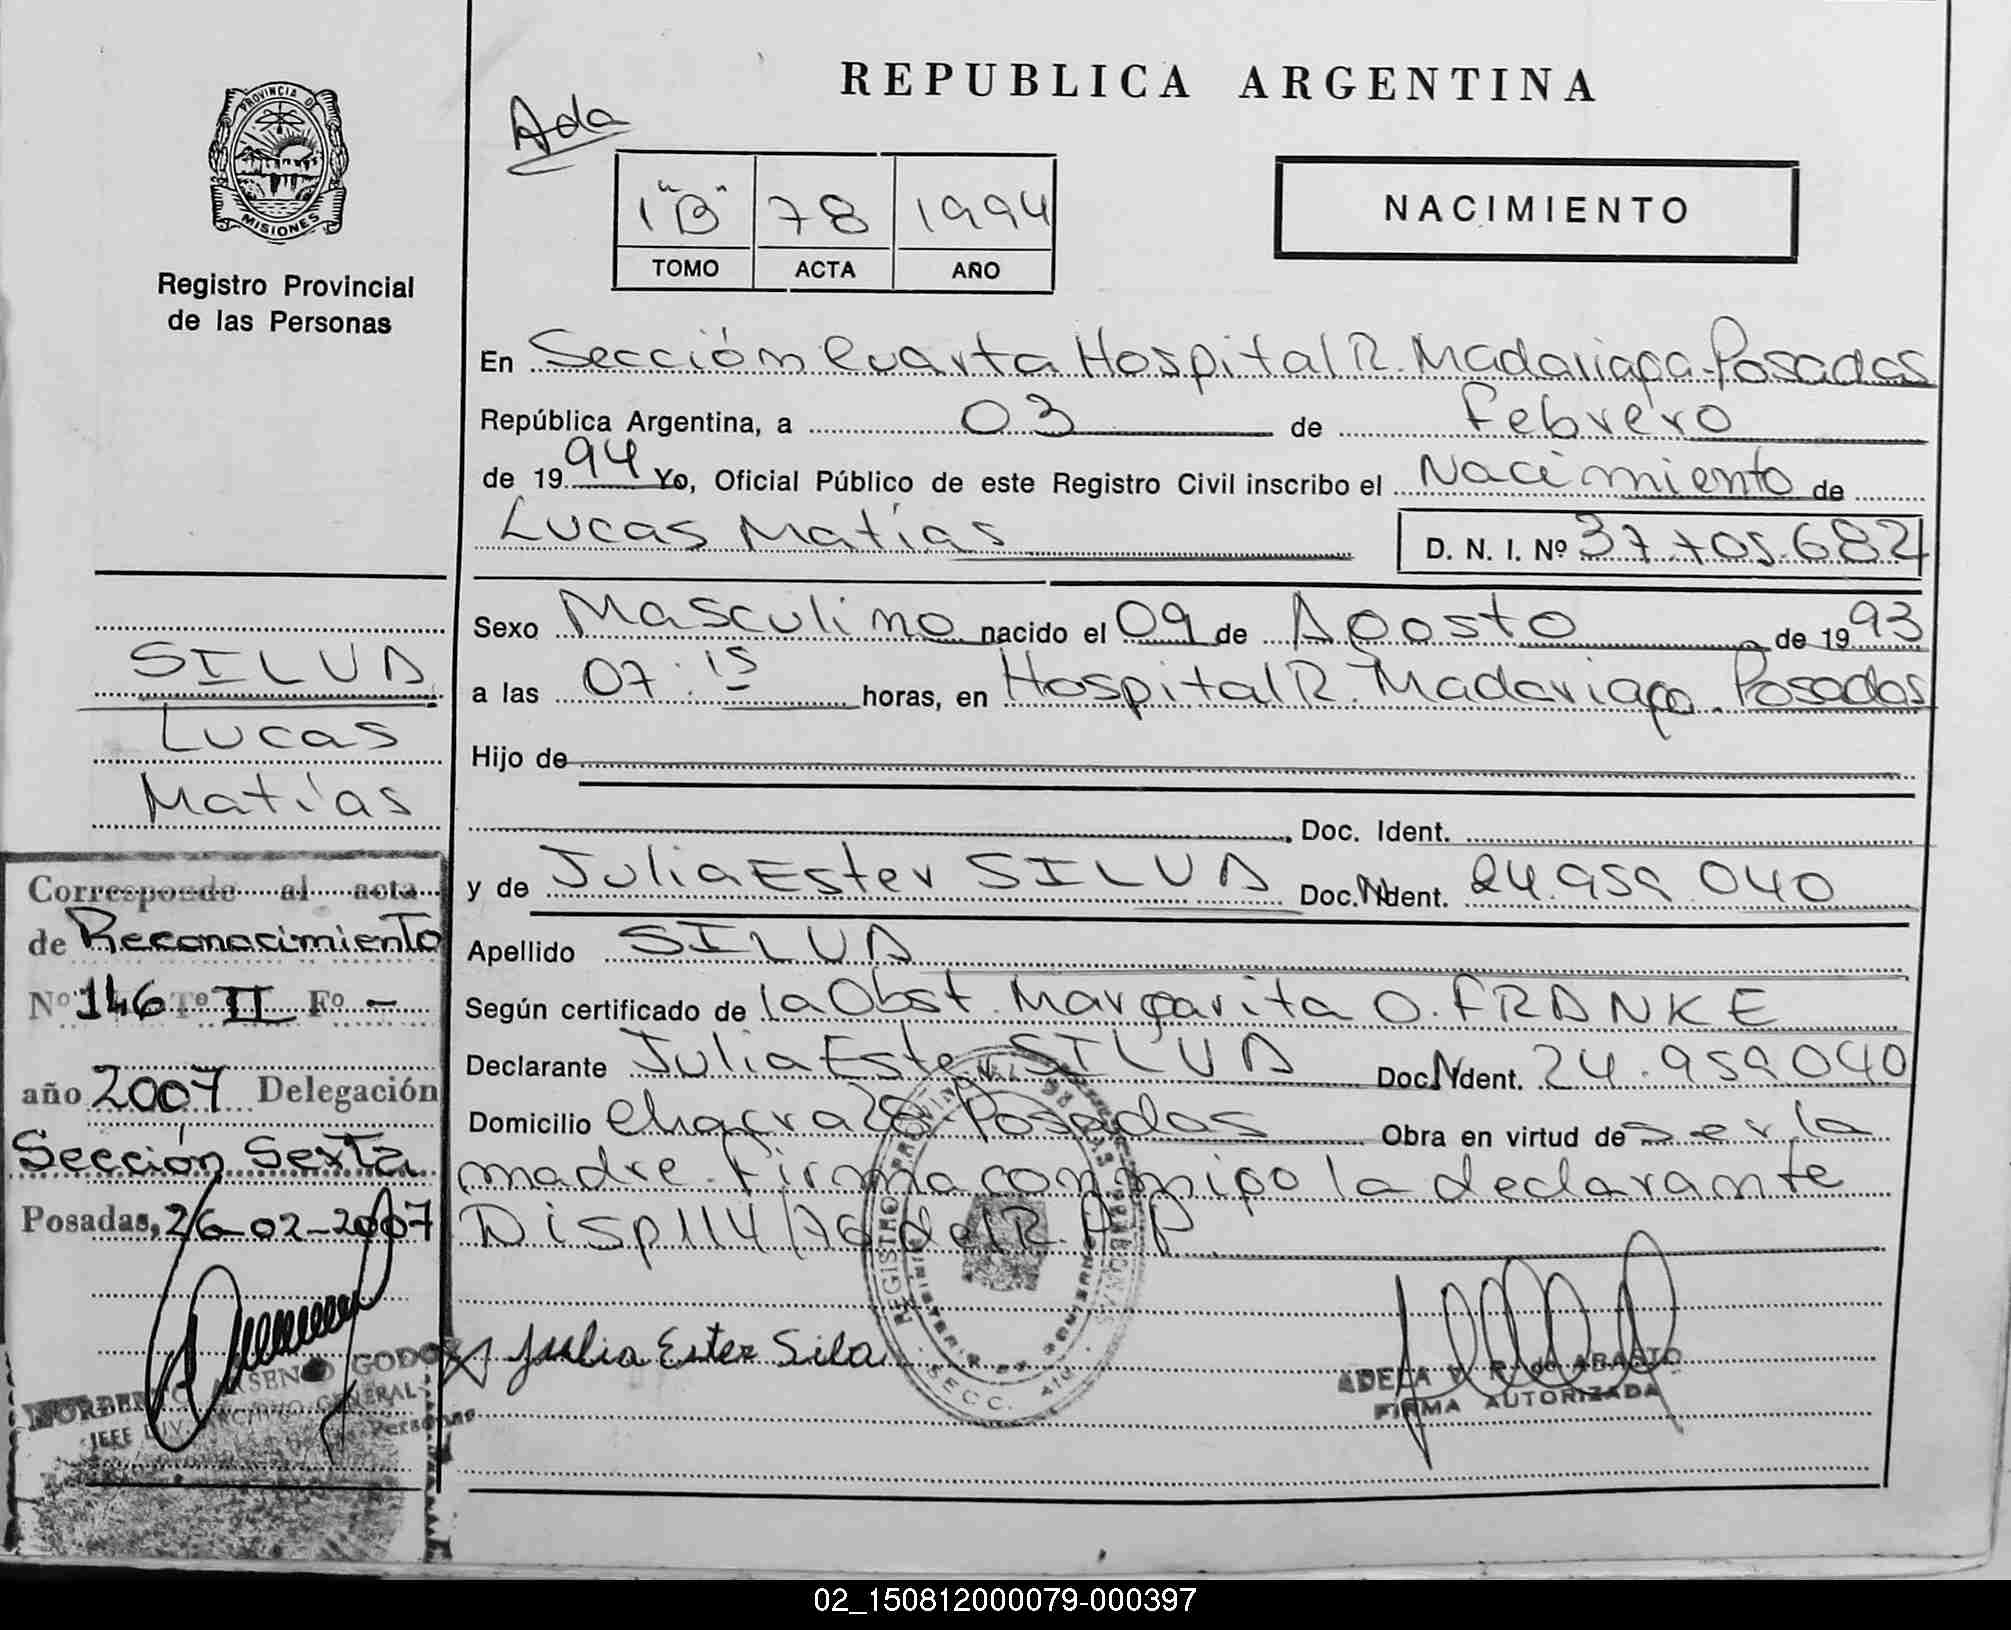 REPUBLICA ARGENTINA
PROVINCIA DE
MISIONES
Registro Provincial
de las Personas
Ada
1 "B" 78 1994
TOMO ACTA AÑO
NACIMIENTO
En Sección Cuarta Hospital R. Madariaga-Posadas
República Argentina, a 03 de Febrero
de 1994 Yo, Oficial Público de este Registro Civil inscribo el Nacimiento de
Lucas Matías D. N. I. Nº 37.705.682
Sexo Masculino nacido el 09 de Agosto de 1993
a las 07:15 horas, en Hospital R. Madariaga. Posadas
Hijo de
Doc. Ident.
y de Julia Ester SILVA Doc. Ident. 24.959.040
Apellido SILVA
Según certificado de la Obst. Margarita O. FRANKE
Declarante Julia Ester SILVA Doc. Ident. 24.959040
Domicilio Chacra 28-Posadas Obra en virtud de ser la
madre. Firma conmigo la declarante
Disp 114/76 del R.P.P.
Julia Ester Sila
ADELA V. R. de ABASTO
FIRMA AUTORIZADA
SECC. 4ta
SILVA
Lucas
Matías
Corresponde al acta
de Reconocimiento
Nº 146 Tº II Fº -
año 2007 Delegación
Sección Sexta
Posadas, 26-02-2007
NORBERTO ARSENIO GODOY
JEFE DIV. ARCHIVO GENERAL
02_150812000079-000397